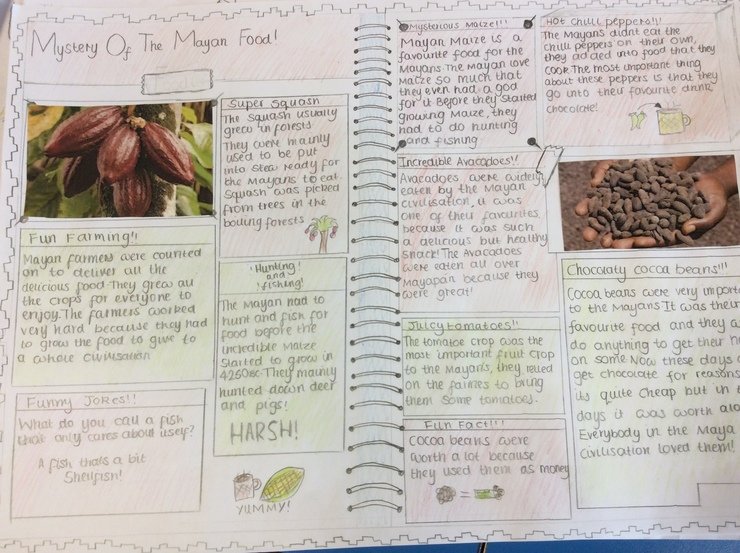 Mystery Of The Mayan Food!
Super Squash
The squash usually
grew in forests
They were mainly
used to be put
into stew ready for
the Mayans to eat.
Squash was picked
from trees in the
boiling forests
Fun Farming!!
Mayan farmers were counted
on to deliver all the
delicious food. They grew all
the crops for everyone to
enjoy. The farmers worked
very hard because they had
to grow the food to give to
a whole civilisation
'Hunting'
and
'fishing'
The Mayan had to
hunt and fish for
food before the
incredible Maize
started to grow in
4250BC. They mainly
hunted down deer
and pigs!
HARSH!
Funny Jokes!!
What do you call a fish
that only cares about itself?
A fish thats a bit
Shelfish!
YUMMY!
Mysterious Maize!!!
Mayan Maize is a
favourite food for the
Mayans. The Mayan love
Maize so much that
they even had a god
for it Before they started
growing Maize, they
had to do hunting
and fishing
Incredible Avacadoes!!
Avacadoes were widely
eaten by the Mayan
civilisation, it was
one of their favourites,
because it was such
a delicious but healthy
snack! The Avacadoes
were eaten all over
Mayapan because they
were great!
Juicy tomatoes!!
The tomatoe crop was the
most important fruit crop
to the Mayans, they relied
on the farmers to bring
them some tomatoes.
Fun Fact!!!
Cocoa beans were
worth a lot because
they used them as money
=
Hot chilli peppers!!!
The Mayans didnt eat the
chilli peppers on their own,
they added into food that they
cook. The most important thing
about these peppers is that they
go into their favourite drink,
chocolate!
Chocolaty cocoa beans!!!
Cocoa beans were very
to the Mayans. It was their
favourite food and they
do anything to get their
on some. Now these days
get chocolate for reasons
its quite cheap but in
days it was worth
Everybody in the Maya
civilisation loved them!